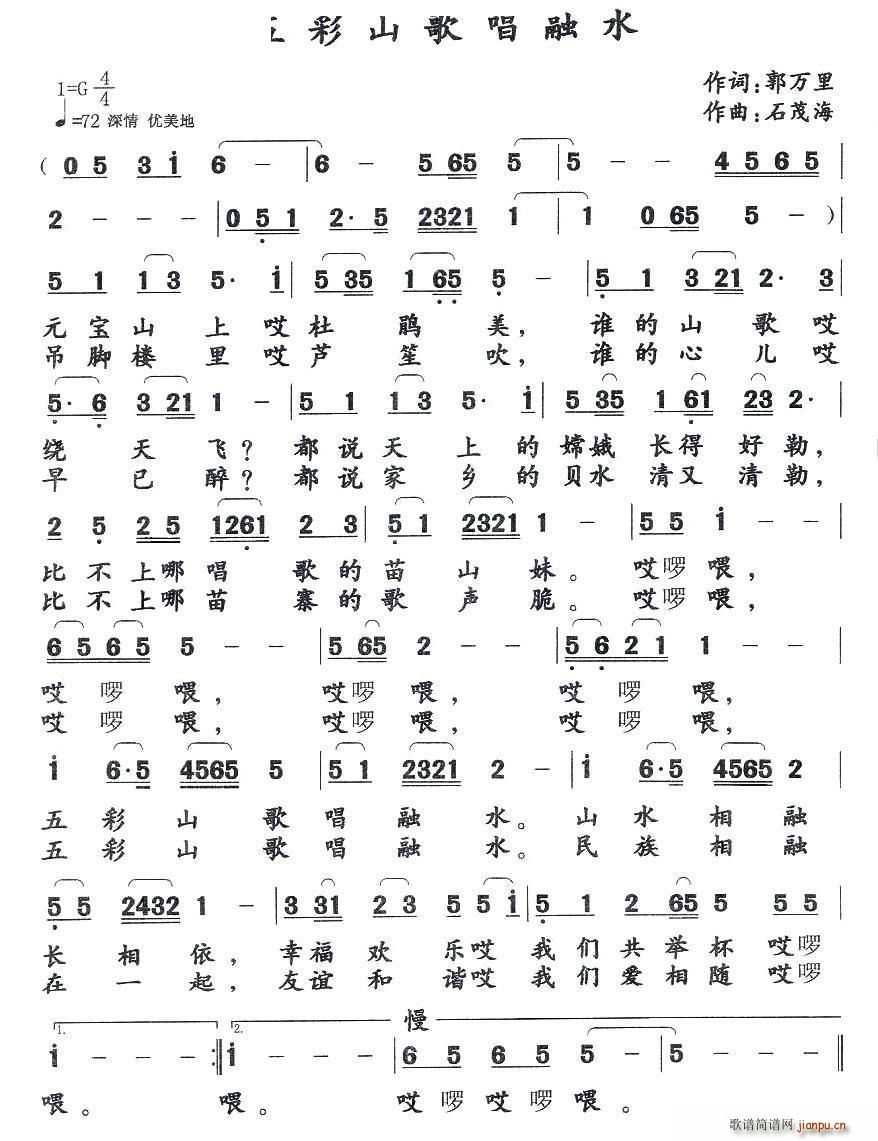 彩山歌唱融水
1=G 4/4
作词：郭万里
♩=72 深情 优美地
作曲：石茂海
( 0 5 3 i 6 - | 6 - 5 65 5 | 5 - - 4 5 6 5 |
2 - - - | 0 5 1 2· 5 2321 1 | 1 0 65 5 - ) |
5 1 1 3 5· i | 5 35 1 65 5 - | 5 1 3 21 2· 3
元宝山上哎杜鹃美，谁的山歌哎
吊脚楼里哎芦笙吹，谁的心儿哎
5· 6 3 21 1 - | 5 1 1 3 5· i | 5 35 1 61 23 2· |
绕天飞？都说天上的嫦娥长得好勒，
早已醉？都说家乡的贝水清又清勒，
2 5 2 5 1261 2 3 | 5 1 2321 1 - | 5 5 i - |
比不上哪唱歌的苗山妹。哎啰喂，
比不上哪苗寨的歌声脆。哎啰喂，
6 5 6 5 5 - - | 5 65 2 - - | 5 6 2 1 1 - - |
哎啰喂，哎啰喂，哎啰喂，
哎啰喂，哎啰喂，哎啰喂，
i 6·5 4565 5 | 5 1 2321 2 - | i 6·5 4565 2
五彩山歌唱融水。山水相融
五彩山歌唱融水。民族相融
5 5 2432 1 - | 3 31 2 3 5 5 i | 5 1 2 65 5 5 5 |
长相依，幸福欢乐哎我们共举杯哎啰
在一起，友谊和谐哎我们爱相随哎啰
1. 2. 慢
i - - - :| i - - - | 6 5 6 5 5 - | 5 - - - ‖
喂。喂。哎啰哎啰喂。
歌谱简谱网 jianpu.cn